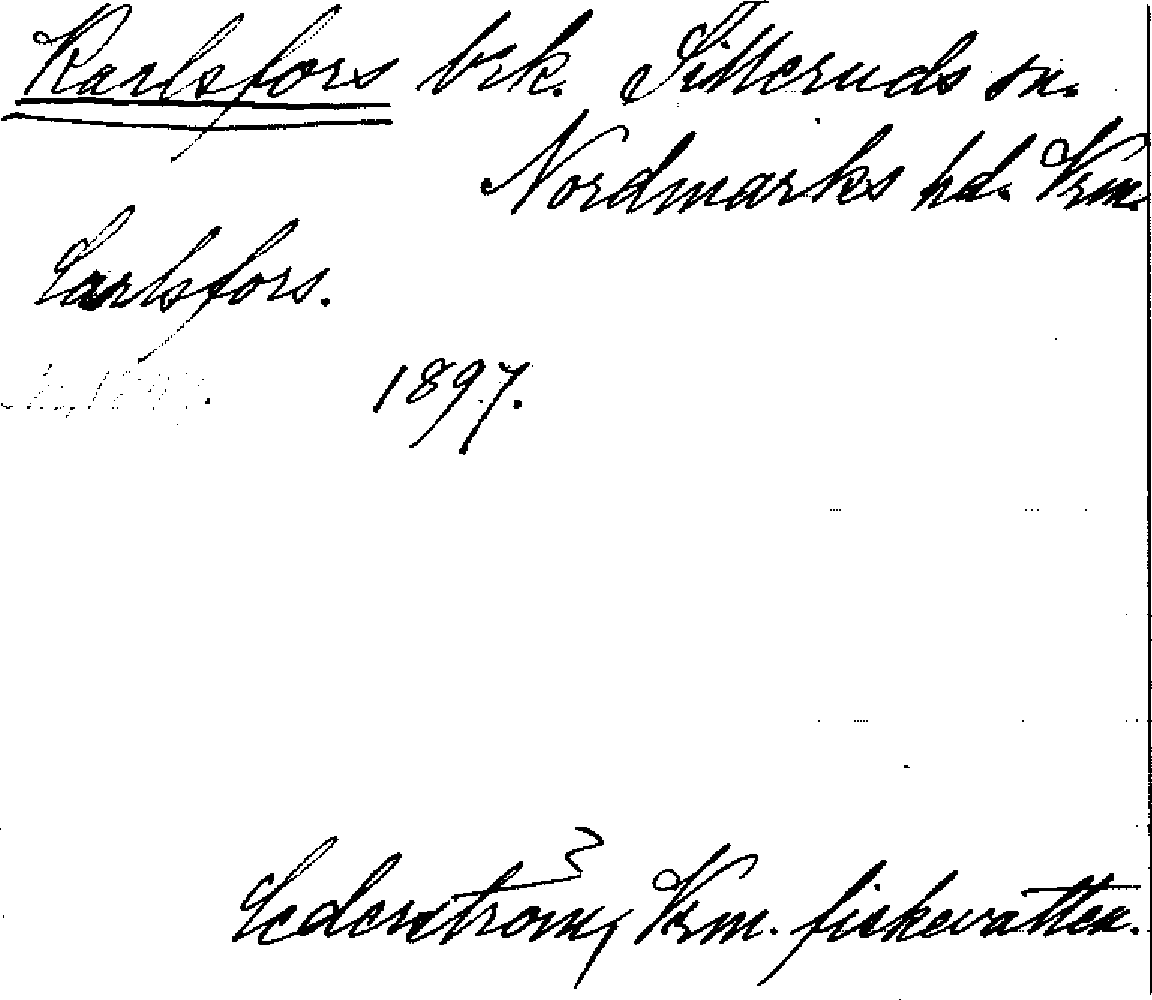 Karlsfors brk. Silleruds sn.
Nordmarks hd. Vrm.
Carlsfors.
1897.
Cederström, Vrm. fiskevatten.